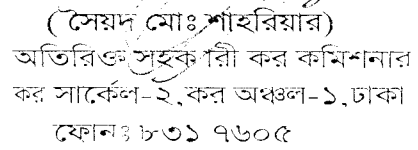 (সৈয়দ মোঃ শাহরিয়ার)
অতিরিক্ত সহকারী কর কমিশনার
কর সার্কেল-২,কর অঞ্চল-১,ঢাকা
ফোনঃ ৮৩১ ৭৬০৫